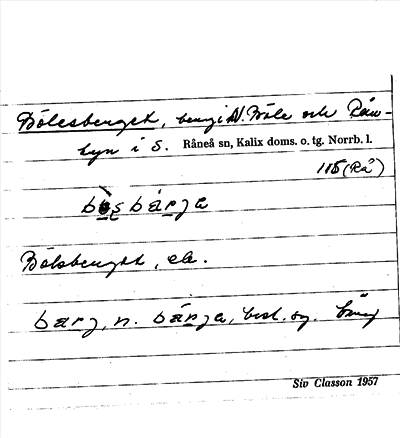 Bölesberget, berg i N. Böle och Rån-
byn i S. Råneå sn, Kalix doms. o. tg. Norrb. l.
115 (Rå)
bärja
Bölsberget, ela.
barj, n. bärja, best. sg. berg
Siv Classon 1957